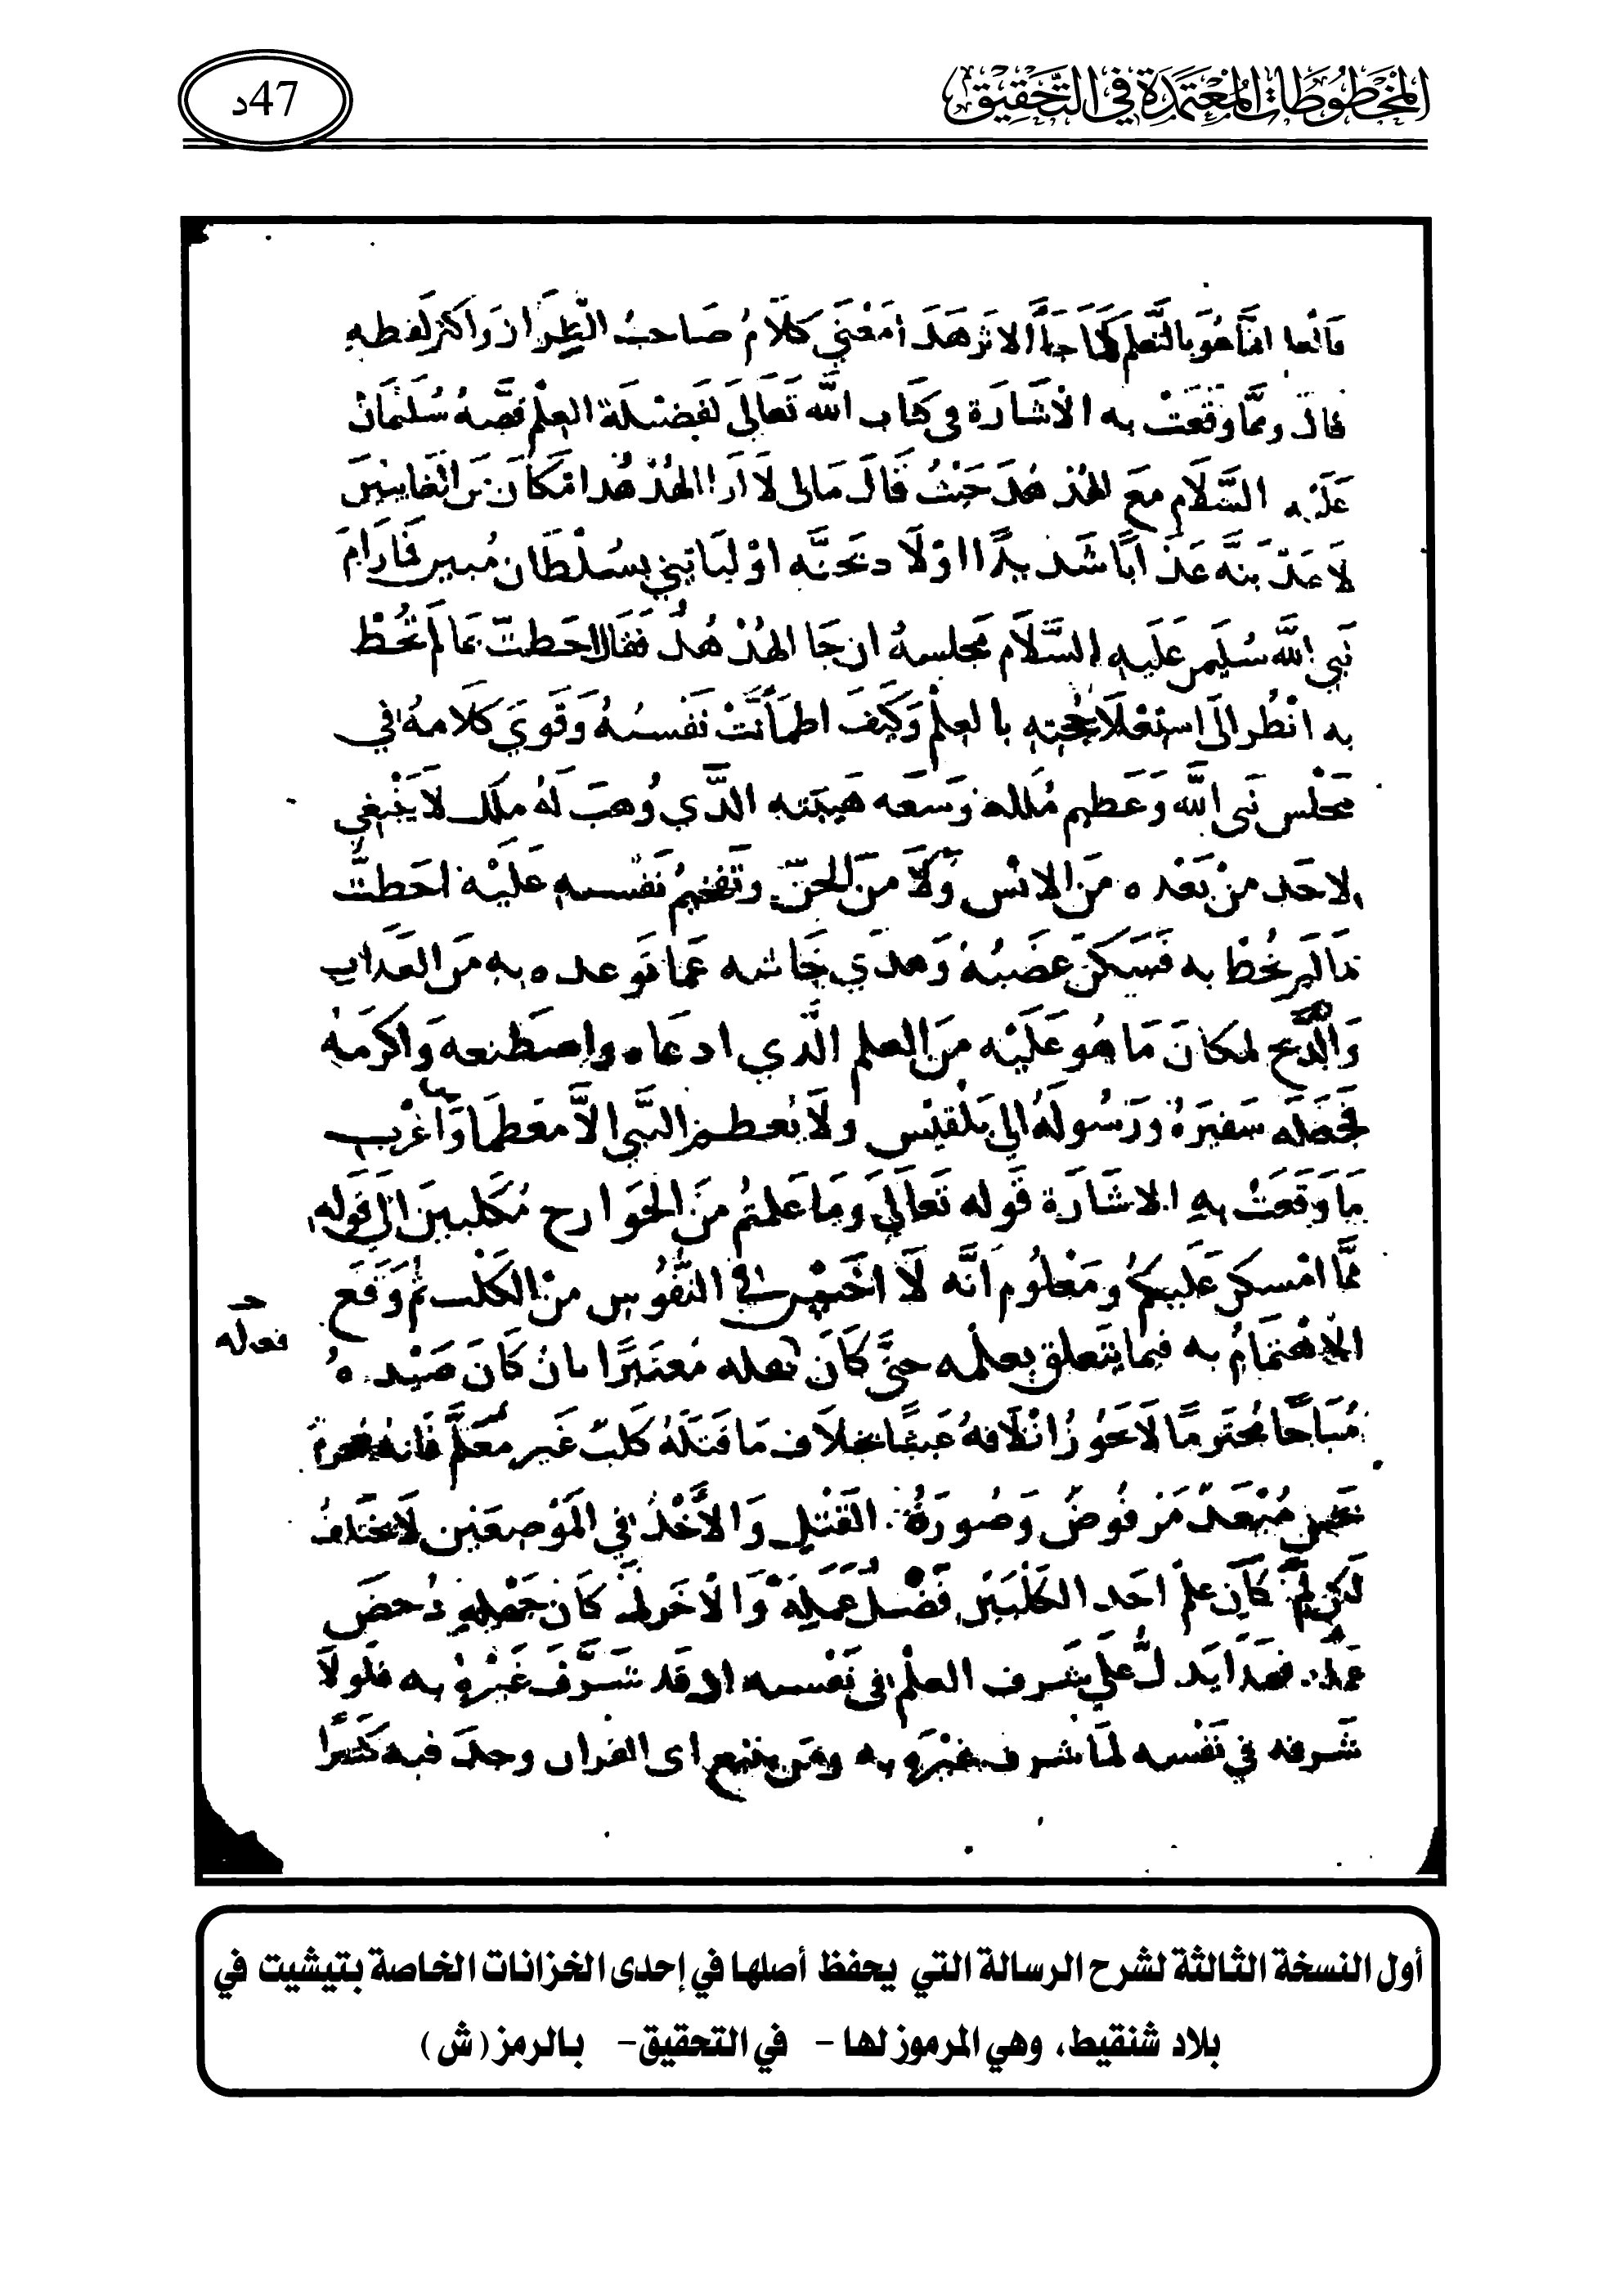 المخطوطات المعتمدة في التحقيق
47د
إنما هو بالتعلم كما جا الاثر هذا معنى كلام صاحب الطراز واكثر لفظه
قال ومما وقعت به الاشارة في كتاب الله تعالى لفضيلة العلم قصة سليمان
عليه السلام مع الهدهد حيث قال مالى لا ارا الهدهد ام كان من الغايبين
لاعذبنه عذابا شديدا اولا ذبحنه او لياتيني بسلطان مبين فما رام
نبي الله سليمن عليه السلام مجلسه ان جا الهدهد فقال احطت بما لم تحط
به انظر الى استعلا حجته بالعلم وكيف اطمأنت نفسه وقوي كلامه في
مجلس نبى الله وعظيم ملكه وسعه هيبته الذي وهب له ملك لا ينبغي
لاحد من بعده من الانس ولا من الجن وتفخيم نفسه عليه احطت
بما لم تحط به فسكن غضبه وهدي جاشه عما توعده به من العذاب
والذبح لمكان ما هو عليه من العلم الذي ادعاه واصطنعه واكرمه
فجعله سفيره ورسوله الى بلقيس ولا يعظم النبي الا معظما واغرب
ما وقعت به الاشارة قوله تعالى وما علمتم من الجوارح مكلبين الى قوله
مما امسكن عليكم ومعلوم انه لا اخس في النفوس من الكلب ثم وقع
الاهتمام به فيما يتعلق بعلمه حتى كان فعله معتبرا بان كان صيده
فعله
مباحا محترما لا يجوز اتلافه عبثا بخلاف ما قتله كلب غير معلم فانه
نجس مبعد مرفوض وصورة القتل والأخذ في الموضعين لا تختلف
لكن لما كان علم احد الكلبين فضل عمله والاخر لما كان جهله دحض
عمله فهذا يدل على شرف العلم في نفسه اذ قد شرف غيره به فلولا
شرفه في نفسه لما شرف غيره به ومن يتبع اى القران وجد فيه كثيرا
أول النسخة الثالثة لشرح الرسالة التي يحفظ أصلها في إحدى الخزانات الخاصة بتيشيت في
بلاد شنقيط، وهي المرموز لها - في التحقيق- بالرمز (ش)